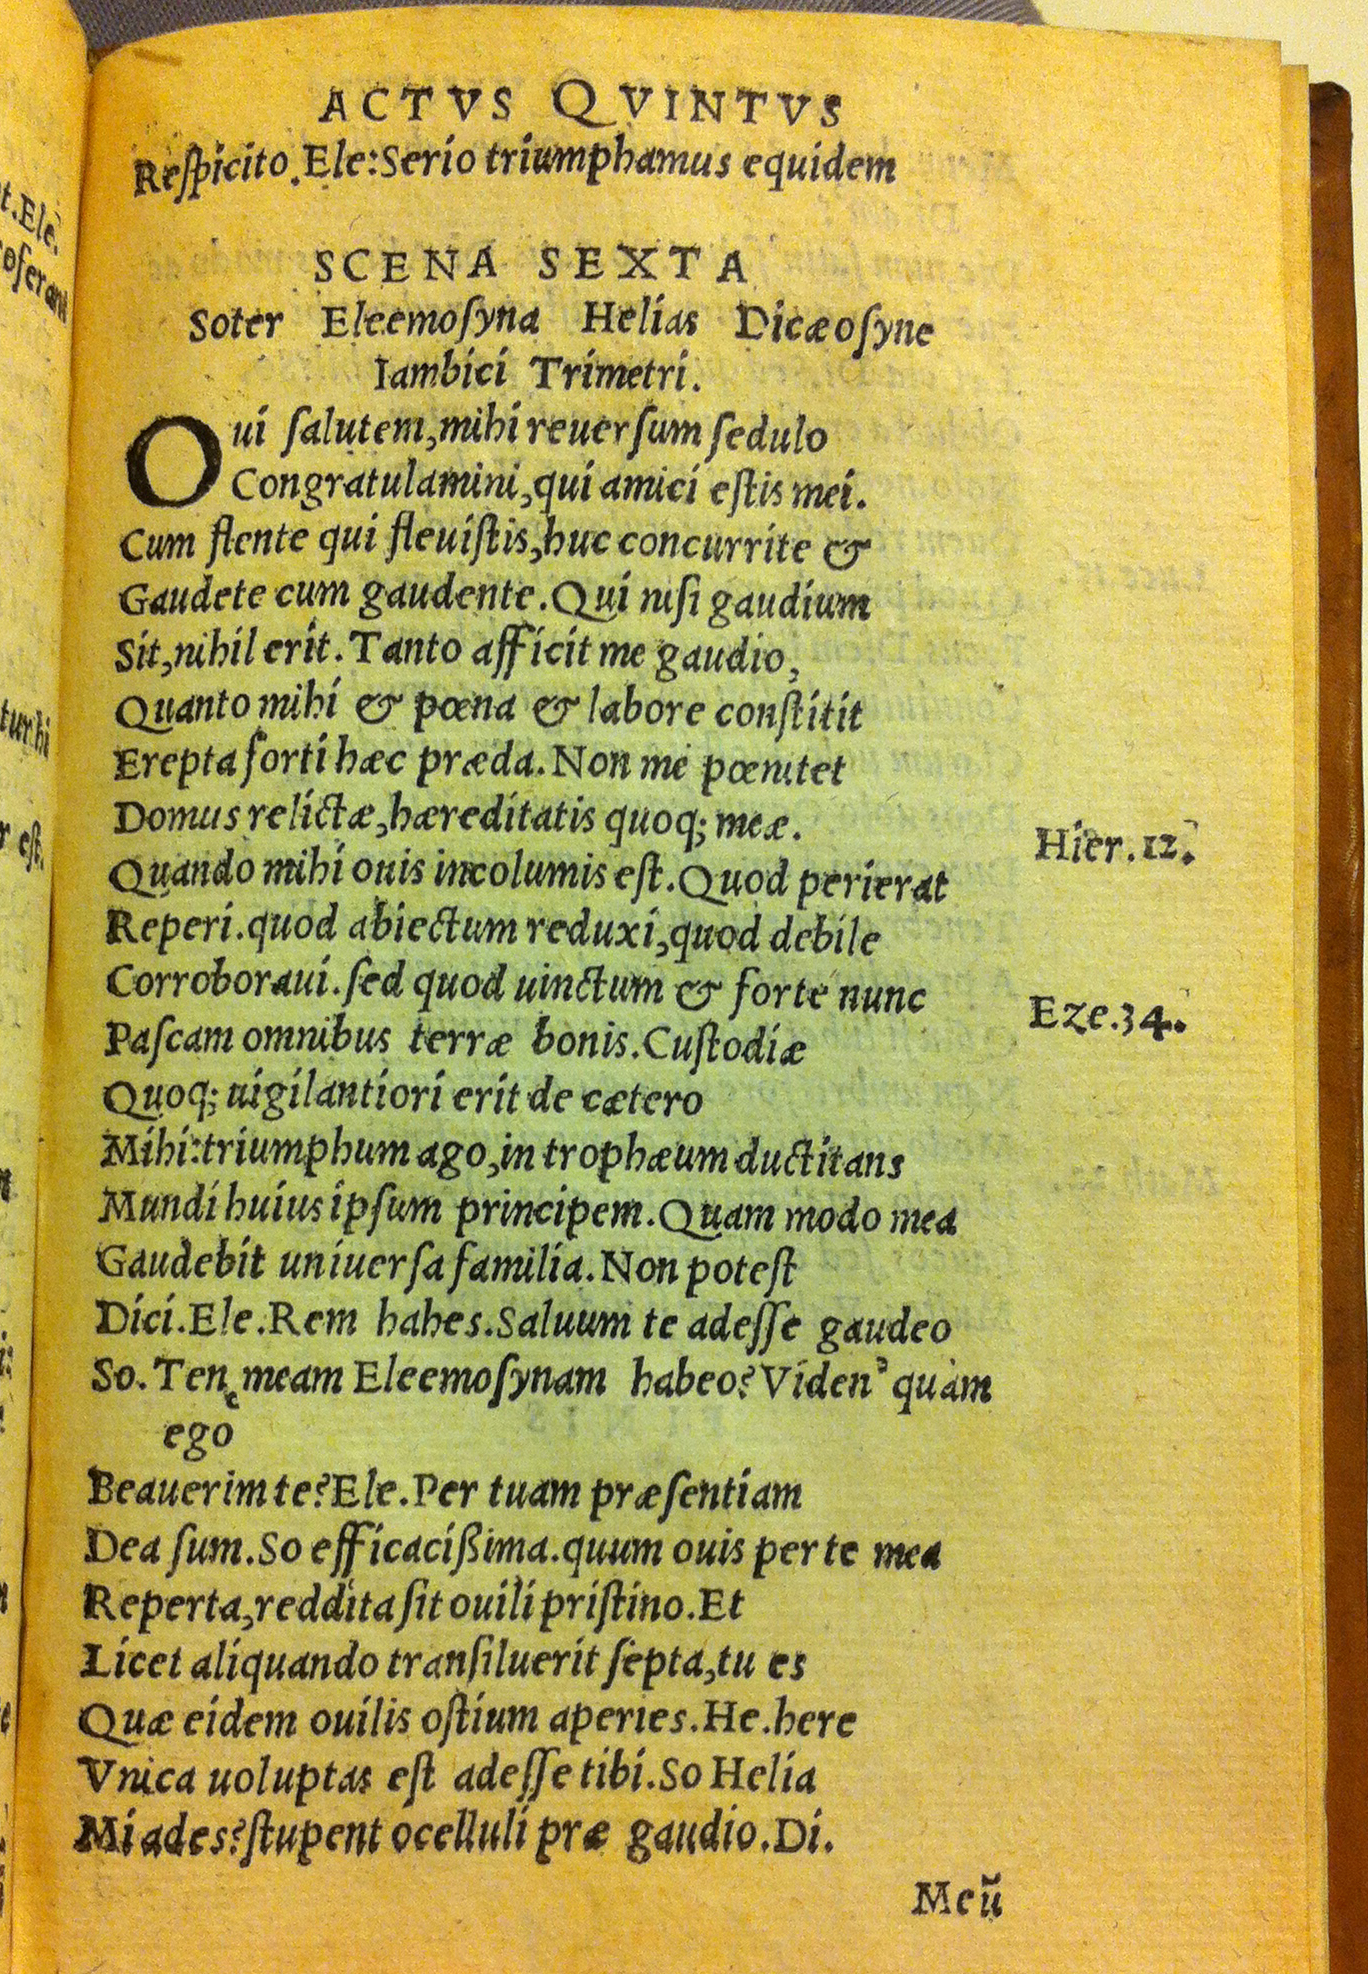 ACTVS QVINTVS
Reſpicito. Ele: Serio triumphamus equidem
SCENA SEXTA
Soter Eleemoſyna Helias Dicæoſyne
Iambici Trimetri.
Oui ſalutem, mihi reuerſum ſedulo
Congratulamini, qui amici eſtis mei.
Cum flente qui fleuiſtis, huc concurrite &
Gaudete cum gaudente. Qui niſi gaudium
Sit, nihil erit. Tanto afficit me gaudio,
Quanto mihi & pœna & labore conſtitit
Erepta forti hæc præda. Non me pœnitet
Domus relictæ, hæreditatis quoq; meæ.
Hier. 12.
Quando mihi ouis incolumis eſt. Quod perierat
Reperi. quod abiectum reduxi, quod debile
Corroboraui. ſed quod uinctum & forte nunc
Eze. 34.
Paſcam omnibus terræ bonis. Cuſtodiæ
Quoq; uigilantiori erit de cætero
Mihi: triumphum ago, in trophæum ductitans
Mundi huius ipſum principem. Quam modo mea
Gaudebit uniuerſa familia. Non poteſt
Dici. Ele. Rem habes. Saluum te adeſſe gaudeo
So. Tene meam Eleemoſynam habeo? Viden' quàm
ego
Beauerim te? Ele. Per tuam præſentiam
Dea ſum. So efficacißima. quum ouis per te mea
Reperta, reddita ſit ouili priſtino. Et
Licet aliquando tranſiluerit ſepta, tu es
Quæ eidem ouilis oſtium aperies. He. here
Vnica uoluptas eſt adeſſe tibi. So Helia
Mi ades? ſtupent ocelluli præ gaudio. Di.
Meũ